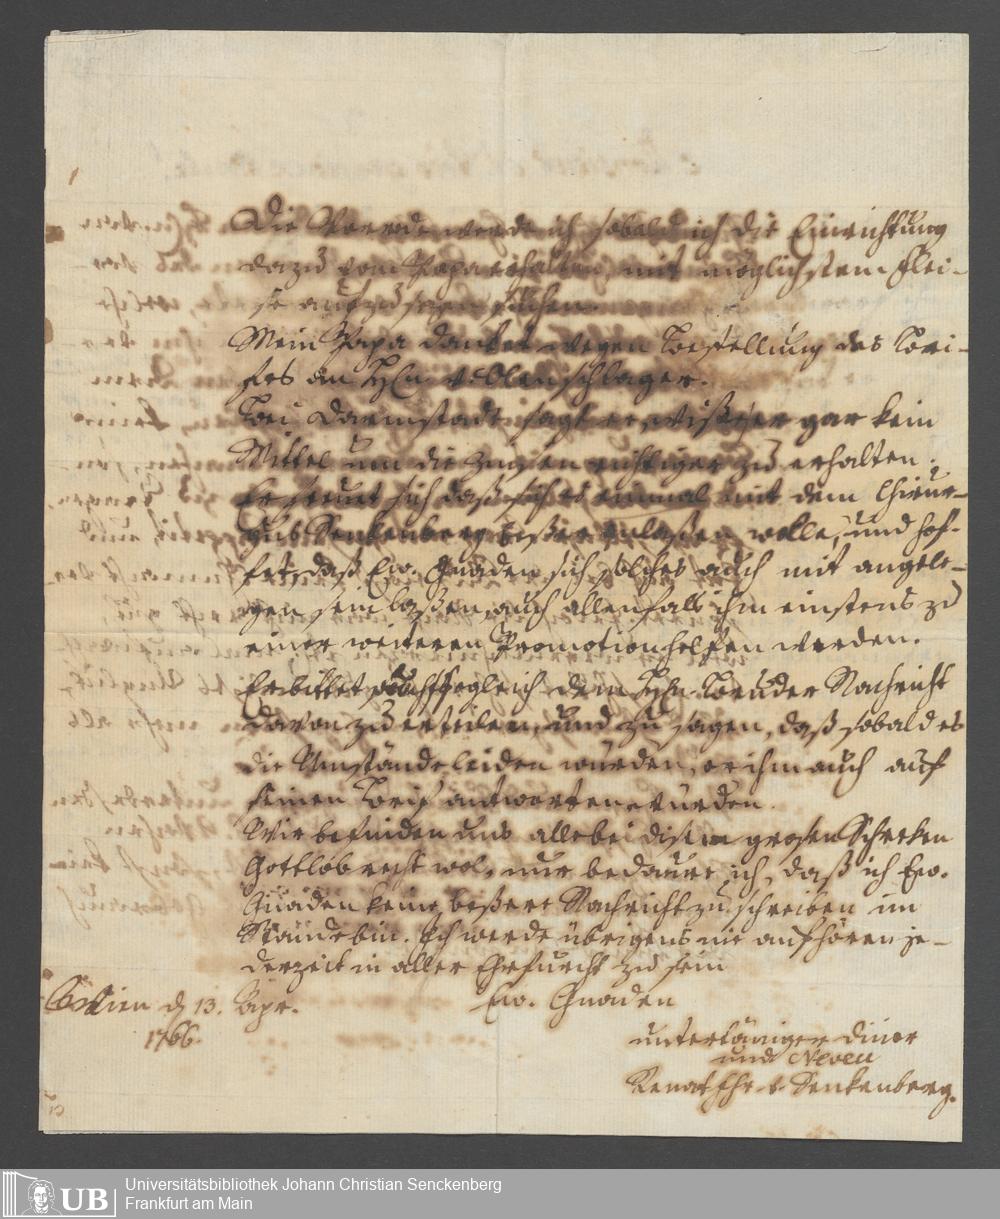 Die Vorrede werde ich sobald ich die Einrichtung
dazu vom Papa erhalten, mit möglichstem Flei-
se aufzusezen suchen.
Mein Papa danket wegen Bestellung des Brie-
fes an HEn
Bei Darmstadt sagt er, wisse er gar kein
Mittel um die Zinsen richtiger zu erhalten.
Er freuet sich daß sich es einmal mit dem Chirur-
gus Senkenberg beßer anlaßen wolle, und hof-
fet, daß Ew. Gnaden sich solches auch mit angele-
gen sein laßen, auch allenfalls ihm einstens zu
einer weiteren Promotion helfen werden.
Er bittet sogleich dem HEn Bruder Nachricht
davon zu erteilen, und zu sagen, daß sobald es
die Umstände leiden würden, er ihm auch auf
seinen Brief antworten würden.
Wir befinden uns alle bei disem grosen Schreken
Gottlob recht wol, nur bedaure ich, daß ich Ew.
Gnaden keine beßere Nachricht zu schreiben im
Stande bin. Ich werde übrigens nie aufhören je-
derzeit in aller Ehrfurcht zu sein
Wien d 13. Apr. Ew. Gnaden
1766.
untertäniger Diner
und Neveu
Renat Chr. v. Senkenberg.
UB Universitätsbibliothek Johann Christian Senckenberg
Frankfurt am Main